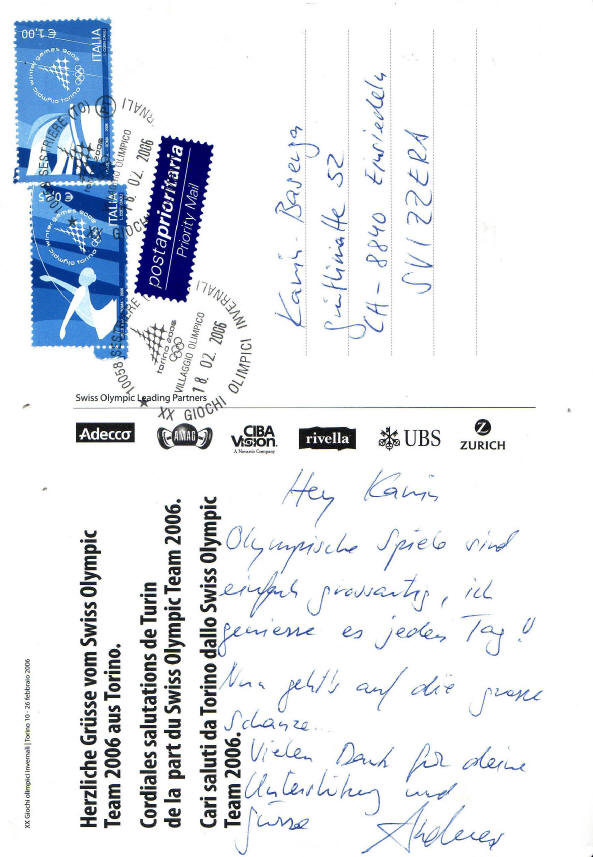 € 1,00
ITALIA
winter games 2006
olympic Torino
€ 0,45
ITALIA
winter games 2006
olympic Torino
10058 SESTRIERE (TO)
VILLAGGIO OLIMPICO
18.02.2006
XX GIOCHI OLIMPICI INVERNALI
postaprioritaria
Priority Mail
10058 SESTRIERE
torino 2006
VILLAGGIO OLIMPICO
18.02.2006
XX GIOCHI OLIMPICI INVERNALI
Karin
CH-8840 Einsiedeln
SVIZZERA
Swiss Olympic Leading Partners
Adecco
AMAG
CIBA VISION
A Novartis Company
rivella
UBS
ZURICH
Hey Karin
Olympische Spiele sind
einfach grossartig, ich
geniesse es jeden Tag!!
Nun geht's auf die grosse
Schanze...
Vielen Dank für deine
Unterstützung und
Grüsse Andreas
Herzliche Grüsse vom Swiss Olympic
Team 2006 aus Torino.
Cordiales salutations de Turin
de la part du Swiss Olympic Team 2006.
Cari saluti da Torino dallo Swiss Olympic
Team 2006.
XX Giochi olimpici invernali | Torino 10 - 26 febbraio 2006